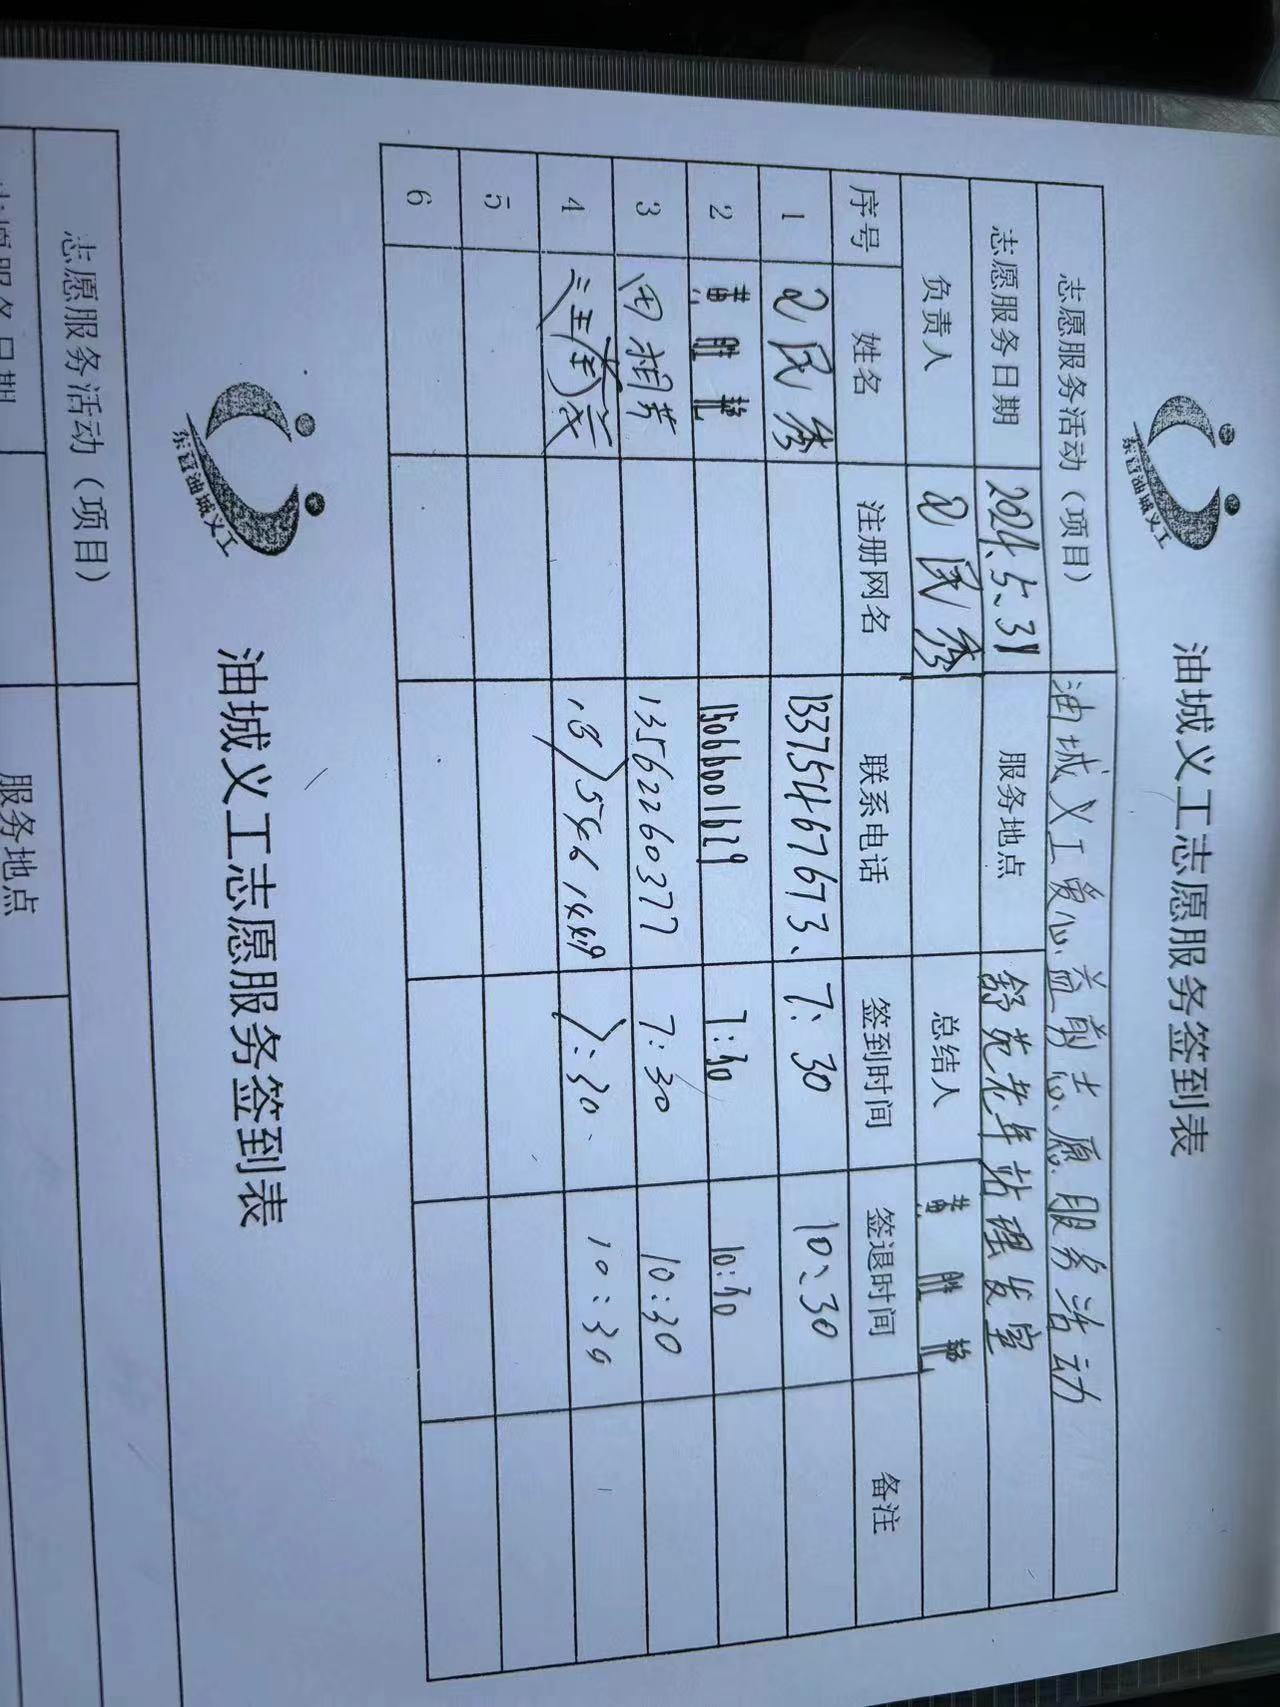 东营油城义工
油城义工志愿服务签到表
志愿服务活动（项目） 油城义工爱心益剪志愿服务活动
志愿服务日期 2024.5.31 服务地点 舒苑老年站理发室
负责人 民秀 总结人 黄胜艳
序号 姓名 注册网名 联系电话 签到时间 签退时间 备注
1 民秀 13375467673、 7:30 10:30
2 黄胜艳 15066001629 7:30 10:30
3 田相芹 13562260377 7:30 10:30
4 7:30 10:30
5
6
东营油城义工
油城义工志愿服务签到表
志愿服务活动（项目）
志愿服务日期 服务地点